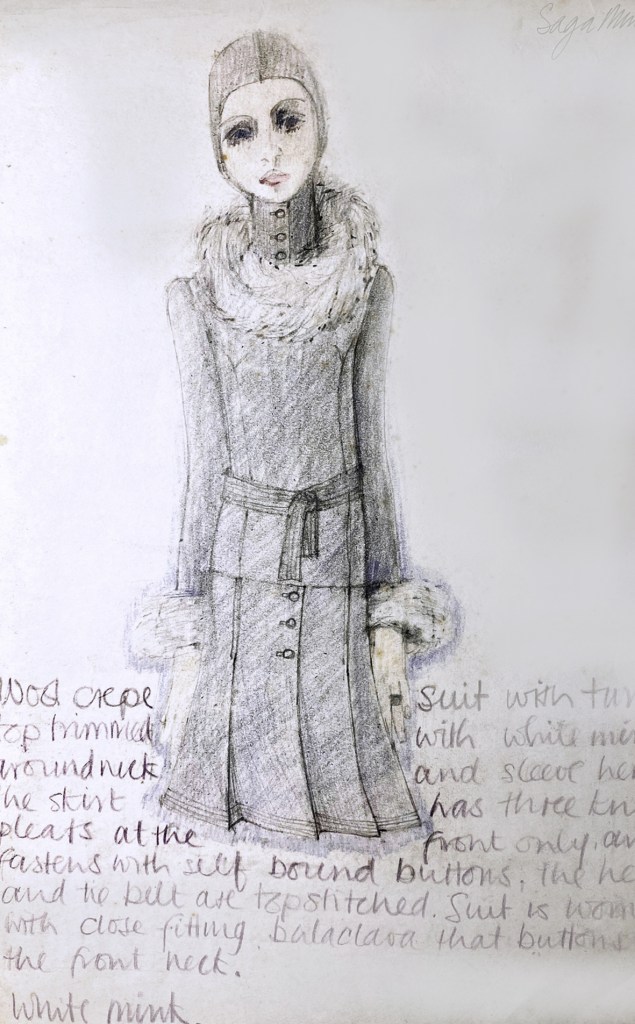 Saga
Wool crepe Suit with
top trimmed with white
around neck and sleeve
The skirt has three
pleats at the front only,
fastens with self bound buttons. The
and tie belt are topstitched. Suit is worn
with close fitting balaclava that buttons
the front neck.
White mink.